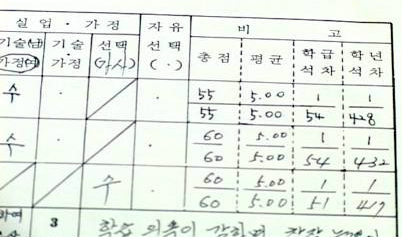 실업·가정 자유 비 고
기술(남) 기술 선택 선택 총점 평균 학급 학년
가정(여) ·가정 (가사) (·) 석차 석차
수 · · 55/55 5.00/5.00 1/54 1/428
수 · · 60/60 5.00/5.00 1/54 1/432
수 · 60/60 5.00/5.00 1/51 1/417
하여 3 학습 의욕이 강하며